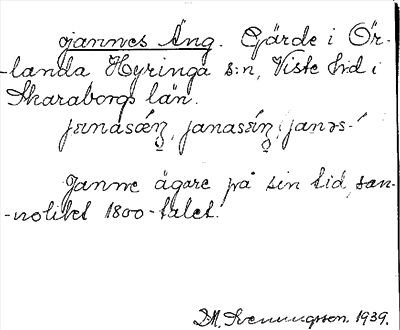 ojannes Äng. Gärde i Ör-
-landa Hyringa s:n, Viste hrd i
Skaraborgs län.
janasǽŋ, janasǽŋ, janəs-´
Janne ägare på sin tid, san-
-nolikt 1800-talet.
M. Svenungsson. 1939.